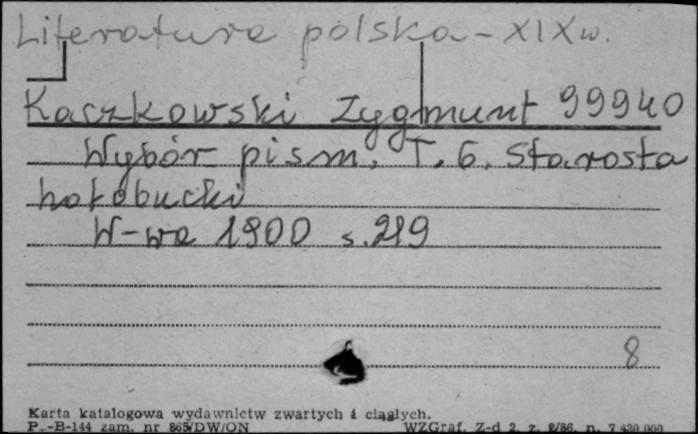 Literatura polska - XIX w.
Kaczkowski Zygmunt 99940
Wybór pism. T. 6. Starosta
hołobucki
W-wa 1900 s. 219
8
Karta katalogowa wydawnictw zwartych i ciągłych.
P.-B-144 zam. nr 865/DW/ON WZGraf. Z-d 2, z. 2/86. n. 7 430 000